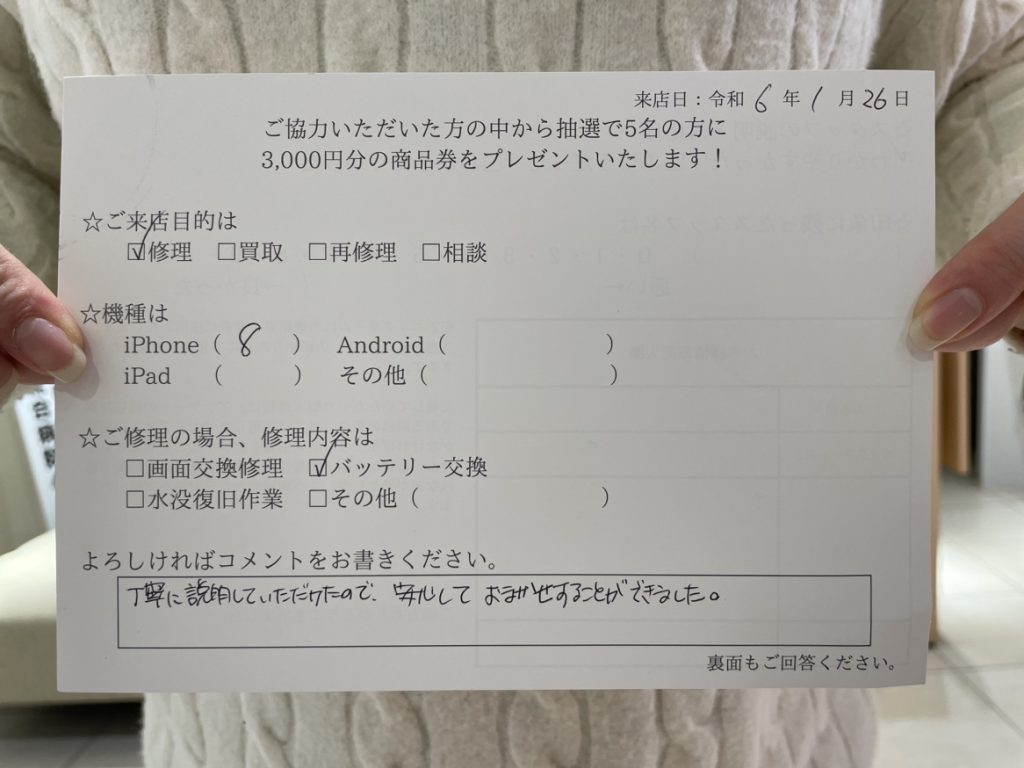 来店日：令和 6 年 1 月 26 日
ご協力いただいた方の中から抽選で5名の方に
3,000円分の商品券をプレゼントいたします！
☆ご来店目的は
☑修理 □買取 □再修理 □相談
☆機種は
iPhone（ 8 ） Android（ ）
iPad （ ） その他（ ）
☆ご修理の場合、修理内容は
□画面交換修理 ☑バッテリー交換
□水没復旧作業 □その他（ ）
よろしければコメントをお書きください。
丁寧に説明していただけたので、安心して おまかせすることができました。
裏面もご回答ください。